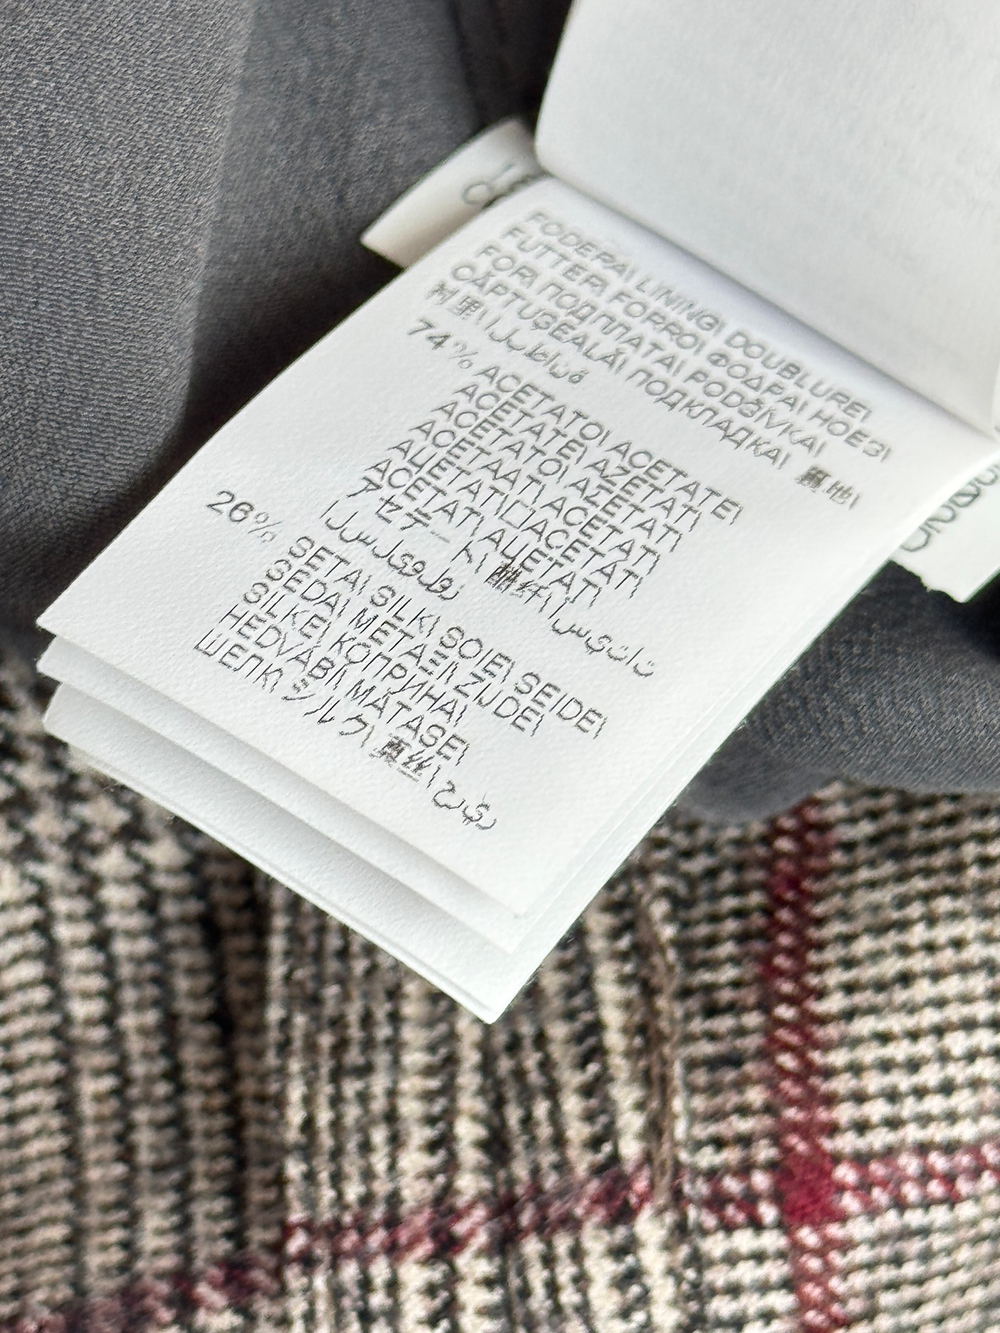 FODERA\ LINING\ DOUBLURE\
FUTTER\ FORRO\ ΦΟΔΡΑ\ HOE3\
FOR\ ПОДПЛАТА\ PODŠÍVKA\
CĂPTUŞEALĂ\ ПОДКЛАДКА\ 裏地\
衬里\ البطانة
74% ACETATO\ ACETATE\
ACETATE\ AZETAT\
ACETATO\ ΑΣΕΤΑΤ\
ACETAAT\ ACETAT\
АЦЕТАТ\ □ACETÁT\
ACETAT\ АЦЕТАТ\
アセテート\ 醋纤\ اسيتات
السليولوز\
26% SETA\ SILK\ SOIE\ SEIDE\
SEDA\ ΜΕΤΑΞΙ\ ZIJDE\
SILKE\ КОПРИНА\
HEDVÁBÍ\ MATASE\
ШЕЛК\ シルク\ 真丝\ حرير